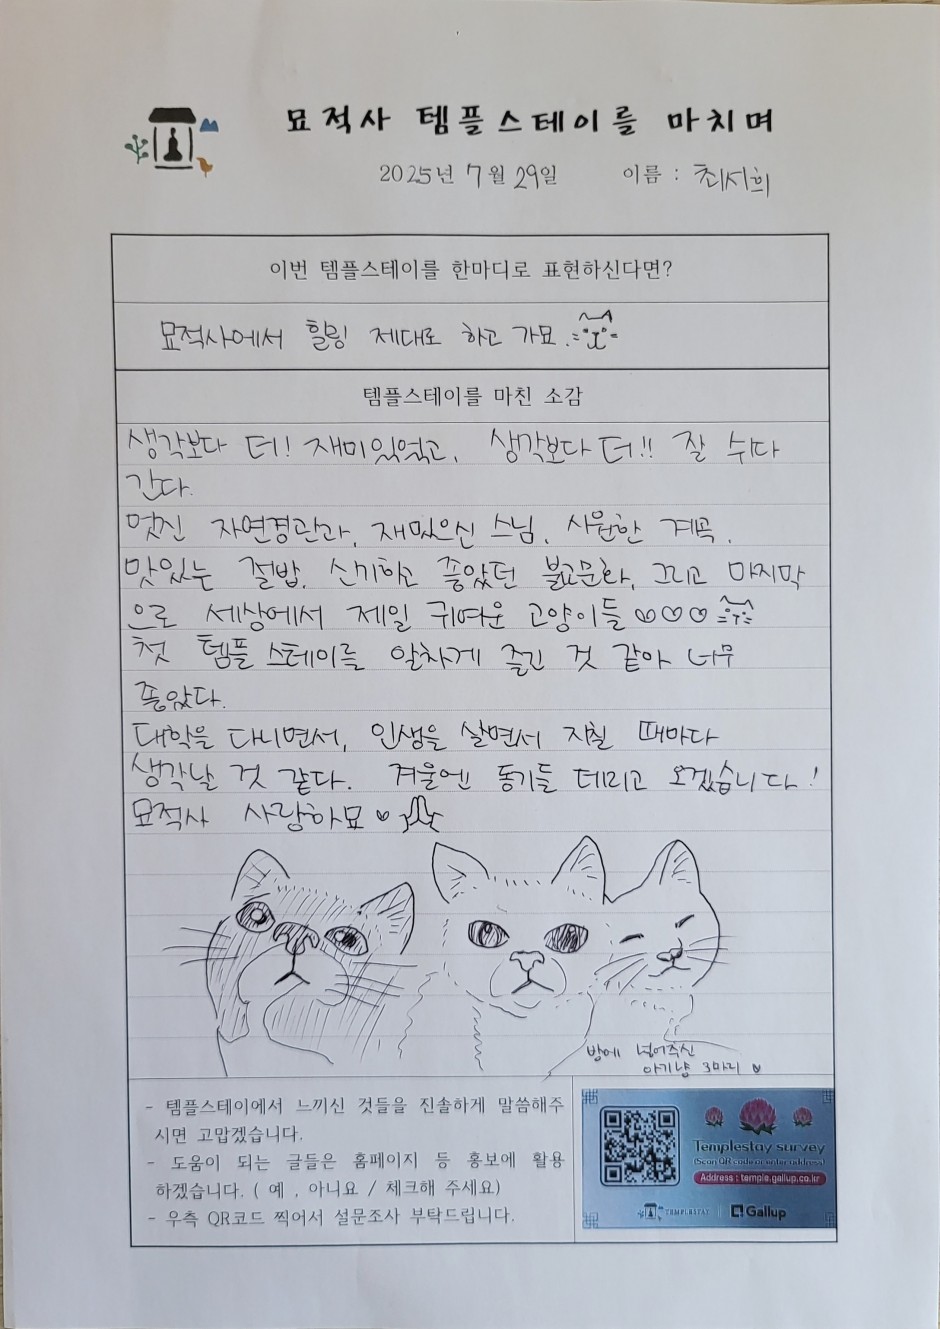 묘적사 템플스테이를 마치며
2025년 7월 29일 이름 : 최시희
이번 템플스테이를 한마디로 표현하신다면?
묘적사에서 힐링 제대로 하고 가묘.
템플스테이를 마친 소감
생각보다 더! 재미있었고, 생각보다 더!! 잘 쉬다
간다.
멋진 자연경관과, 재밌으신 스님, 시원한 계곡,
맛있는 절밥, 신기하고 좋았던 불교문화, 그리고 마지막
으로 세상에서 제일 귀여운 고양이들 ♡♡♡
첫 템플스테이를 알차게 즐긴 것 같아 너무
좋았다.
대학을 다니면서, 인생을 살면서 지칠 때마다
생각날 것 같다. 겨울엔 동기들 데리고 오겠습니다!
묘적사 사랑하묘 ♡
방에 넣어주신
아기냥 3마리 ♡
- 템플스테이에서 느끼신 것들을 진솔하게 말씀해주
시면 고맙겠습니다.
- 도움이 되는 글들은 홈페이지 등 홍보에 활용
하겠습니다. ( 예 , 아니요 / 체크해 주세요)
- 우측 QR코드 찍어서 설문조사 부탁드립니다.
Templestay survey
(Scan QR code or enter address)
Address : temple.gallup.co.kr
TEMPLESTAY Gallup